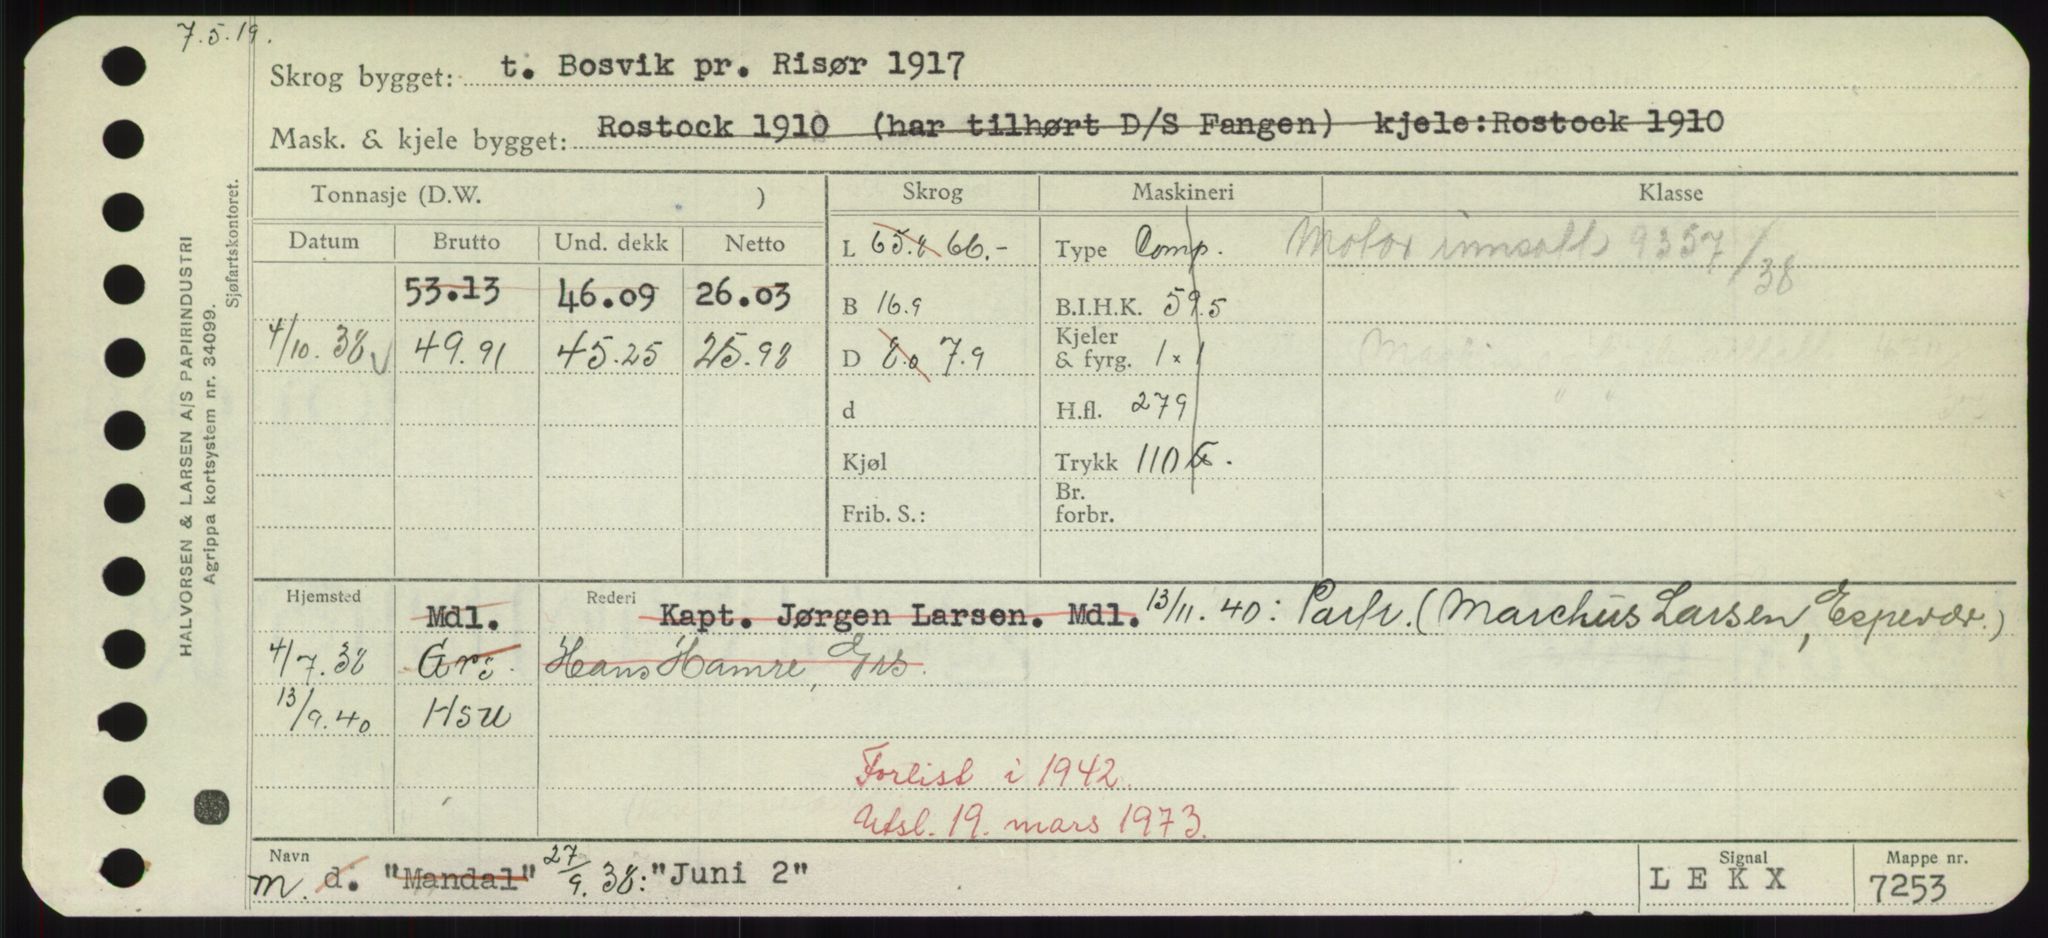 7.5.19.
Skrog bygget: t. Bosvik pr. Risør 1917
Mask. & kjele bygget: Rostock 1910 (har tilhørt D/S Fangen) kjele:Rostock 1910
HALVORSEN & LARSEN A/S PAPIRINDUSTRI
Agrippa kortsystem nr. 34099.
Sjøfartskontoret.
Tonnasje (D.W. ) Skrog Maskineri Klasse
Datum Brutto Und. dekk Netto L 65.8 66.- Type Comp. Motor innsatt 9357/38
53.13 46.09 26.03 B 16.9 B.I.H.K. 59.5
4/10.38 49.91 45.25 25.98 D 8.0 7.9 Kjeler & fyrg. 1 x 1
d H.fl. 279
Kjøl Trykk 110
Frib. S.: Br. forbr.
Hjemsted Mdl. Rederi Kapt. Jørgen Larsen. Mdl. 13/11.40: Partr. (Marchus Larsen, Espevær.)
4/7.38 Grs. Hans Hamre, Grs.
13/9.40 Hsu
Forlist i 1942.
Utsl. 19. mars 1973.
Navn m. d. "Mandal" 27/9.38: "Juni 2" Signal LEKX Mappe nr. 7253